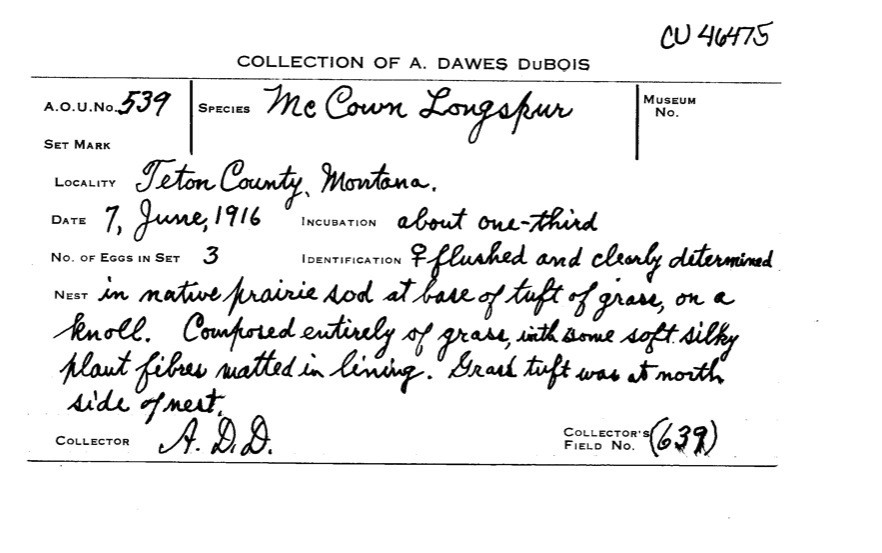 CU 46475
COLLECTION OF A. DAWES DuBOIS
A.O.U. No. 539 SPECIES Mc Cown Longspur MUSEUM No.
SET MARK
LOCALITY Teton County, Montana.
DATE 7, June, 1916 INCUBATION about one-third
No. OF EGGS IN SET 3 IDENTIFICATION ♀ flushed and clearly determined
NEST in native prairie sod at base of tuft of grass, on a
knoll. Composed entirely of grass, with some soft silky
plant fibres matted in lining. Grass tuft was at north
side of nest.
COLLECTOR A. D. D. COLLECTOR'S FIELD No. (639)